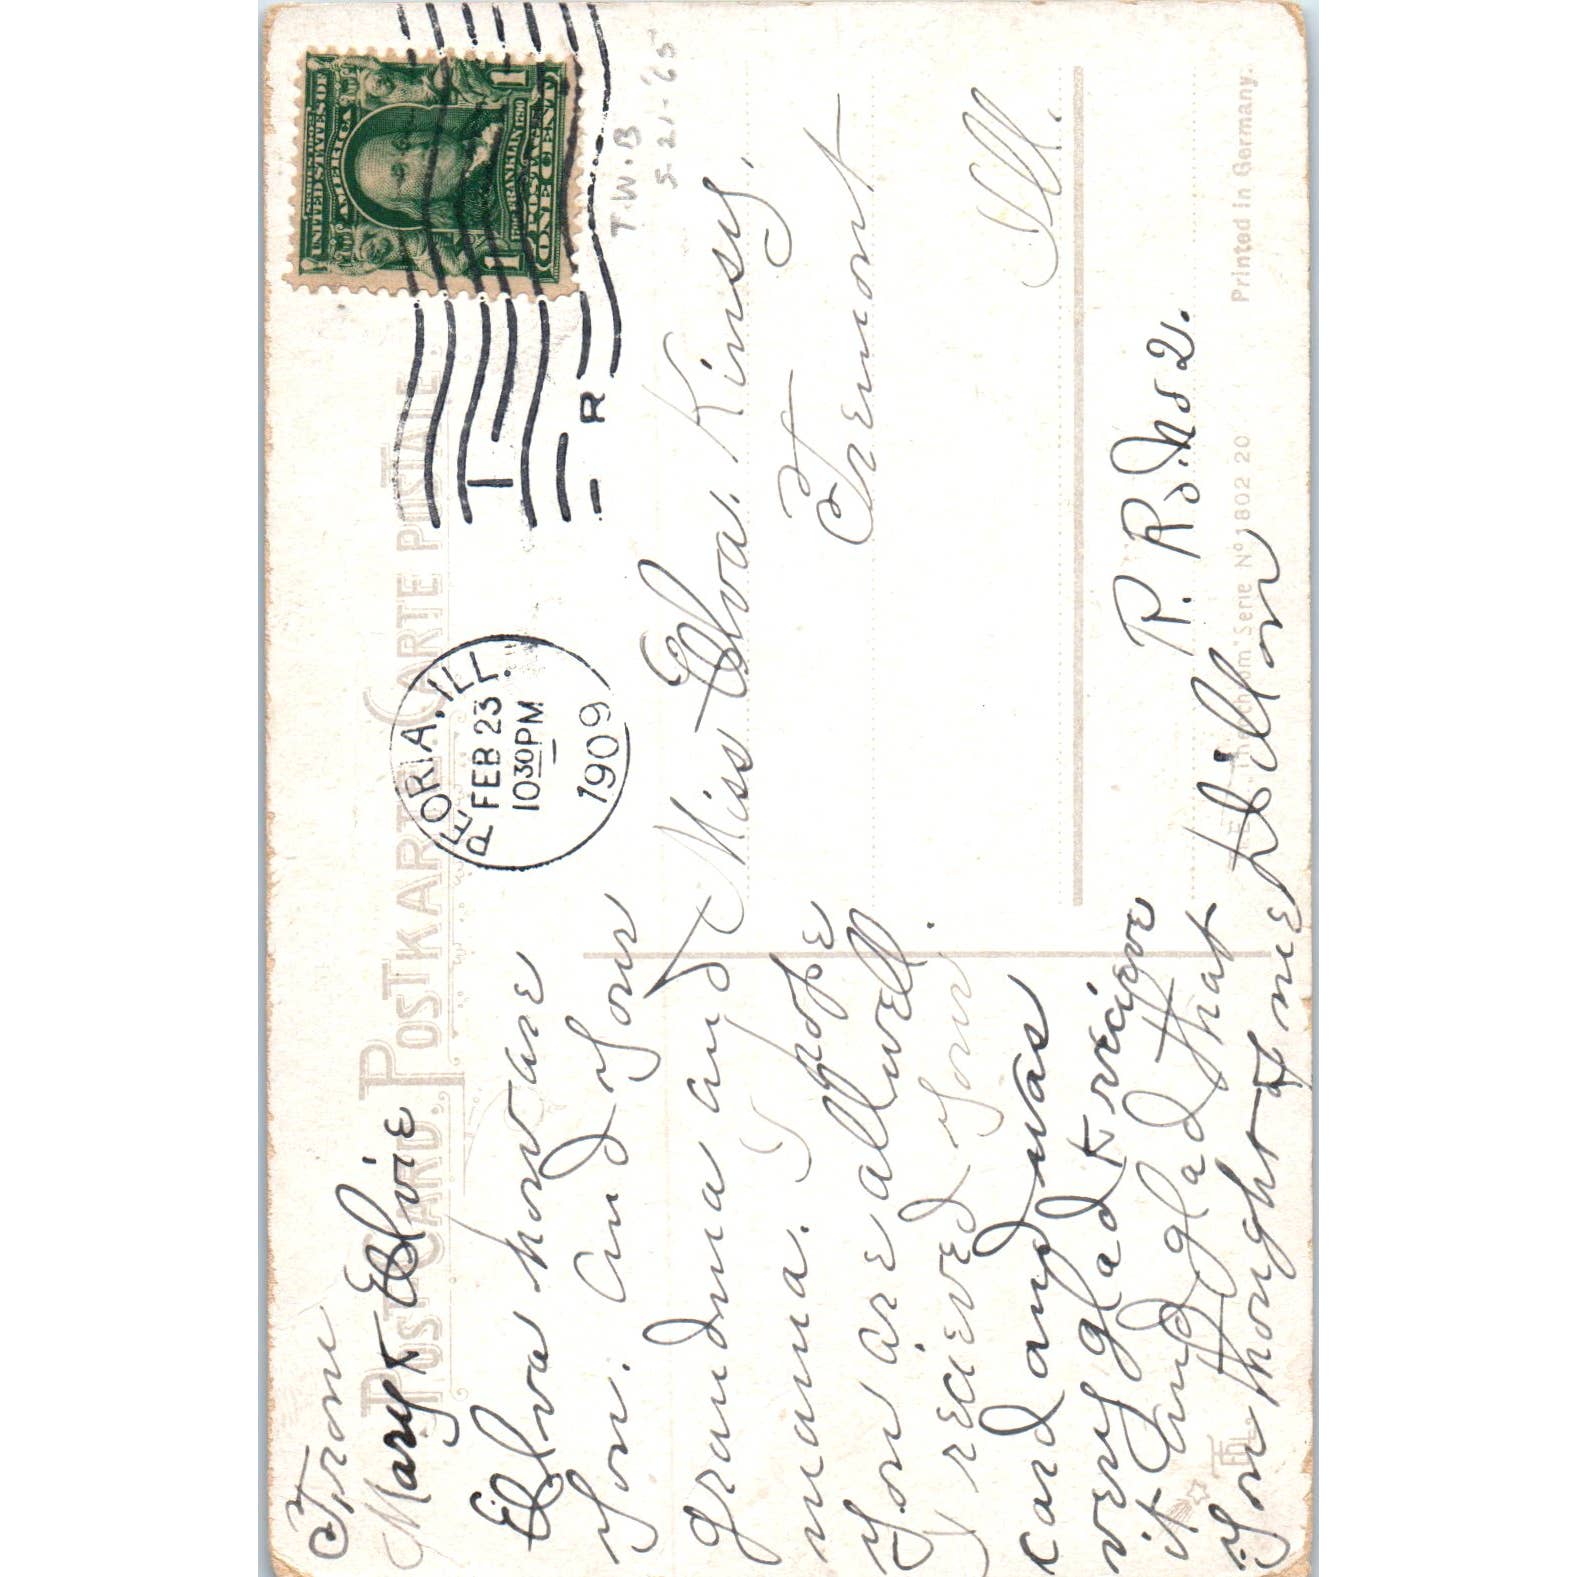 From
Mary & Elvie
POST CARD. POSTKARTE. CARTE POSTALE.
PEORIA, ILL.
FEB 23
10 30 PM
1909
R
UNITED STATES OF
AMERICA
FRANKLIN 1790
POSTAGE
ONE CENT
1 1
T.W.B
5-21-'65
Elva how are
you. and your
grandma and
mama. I hope
you are all well.
I recieved your
card and was
very glad to recieve
it and glad that
you thought of me
Dillon
Miss Elva. Kinsy.
Tremont
Ill.
R. R. No 2.
Serie Nº 1802 20
Printed in Germany.